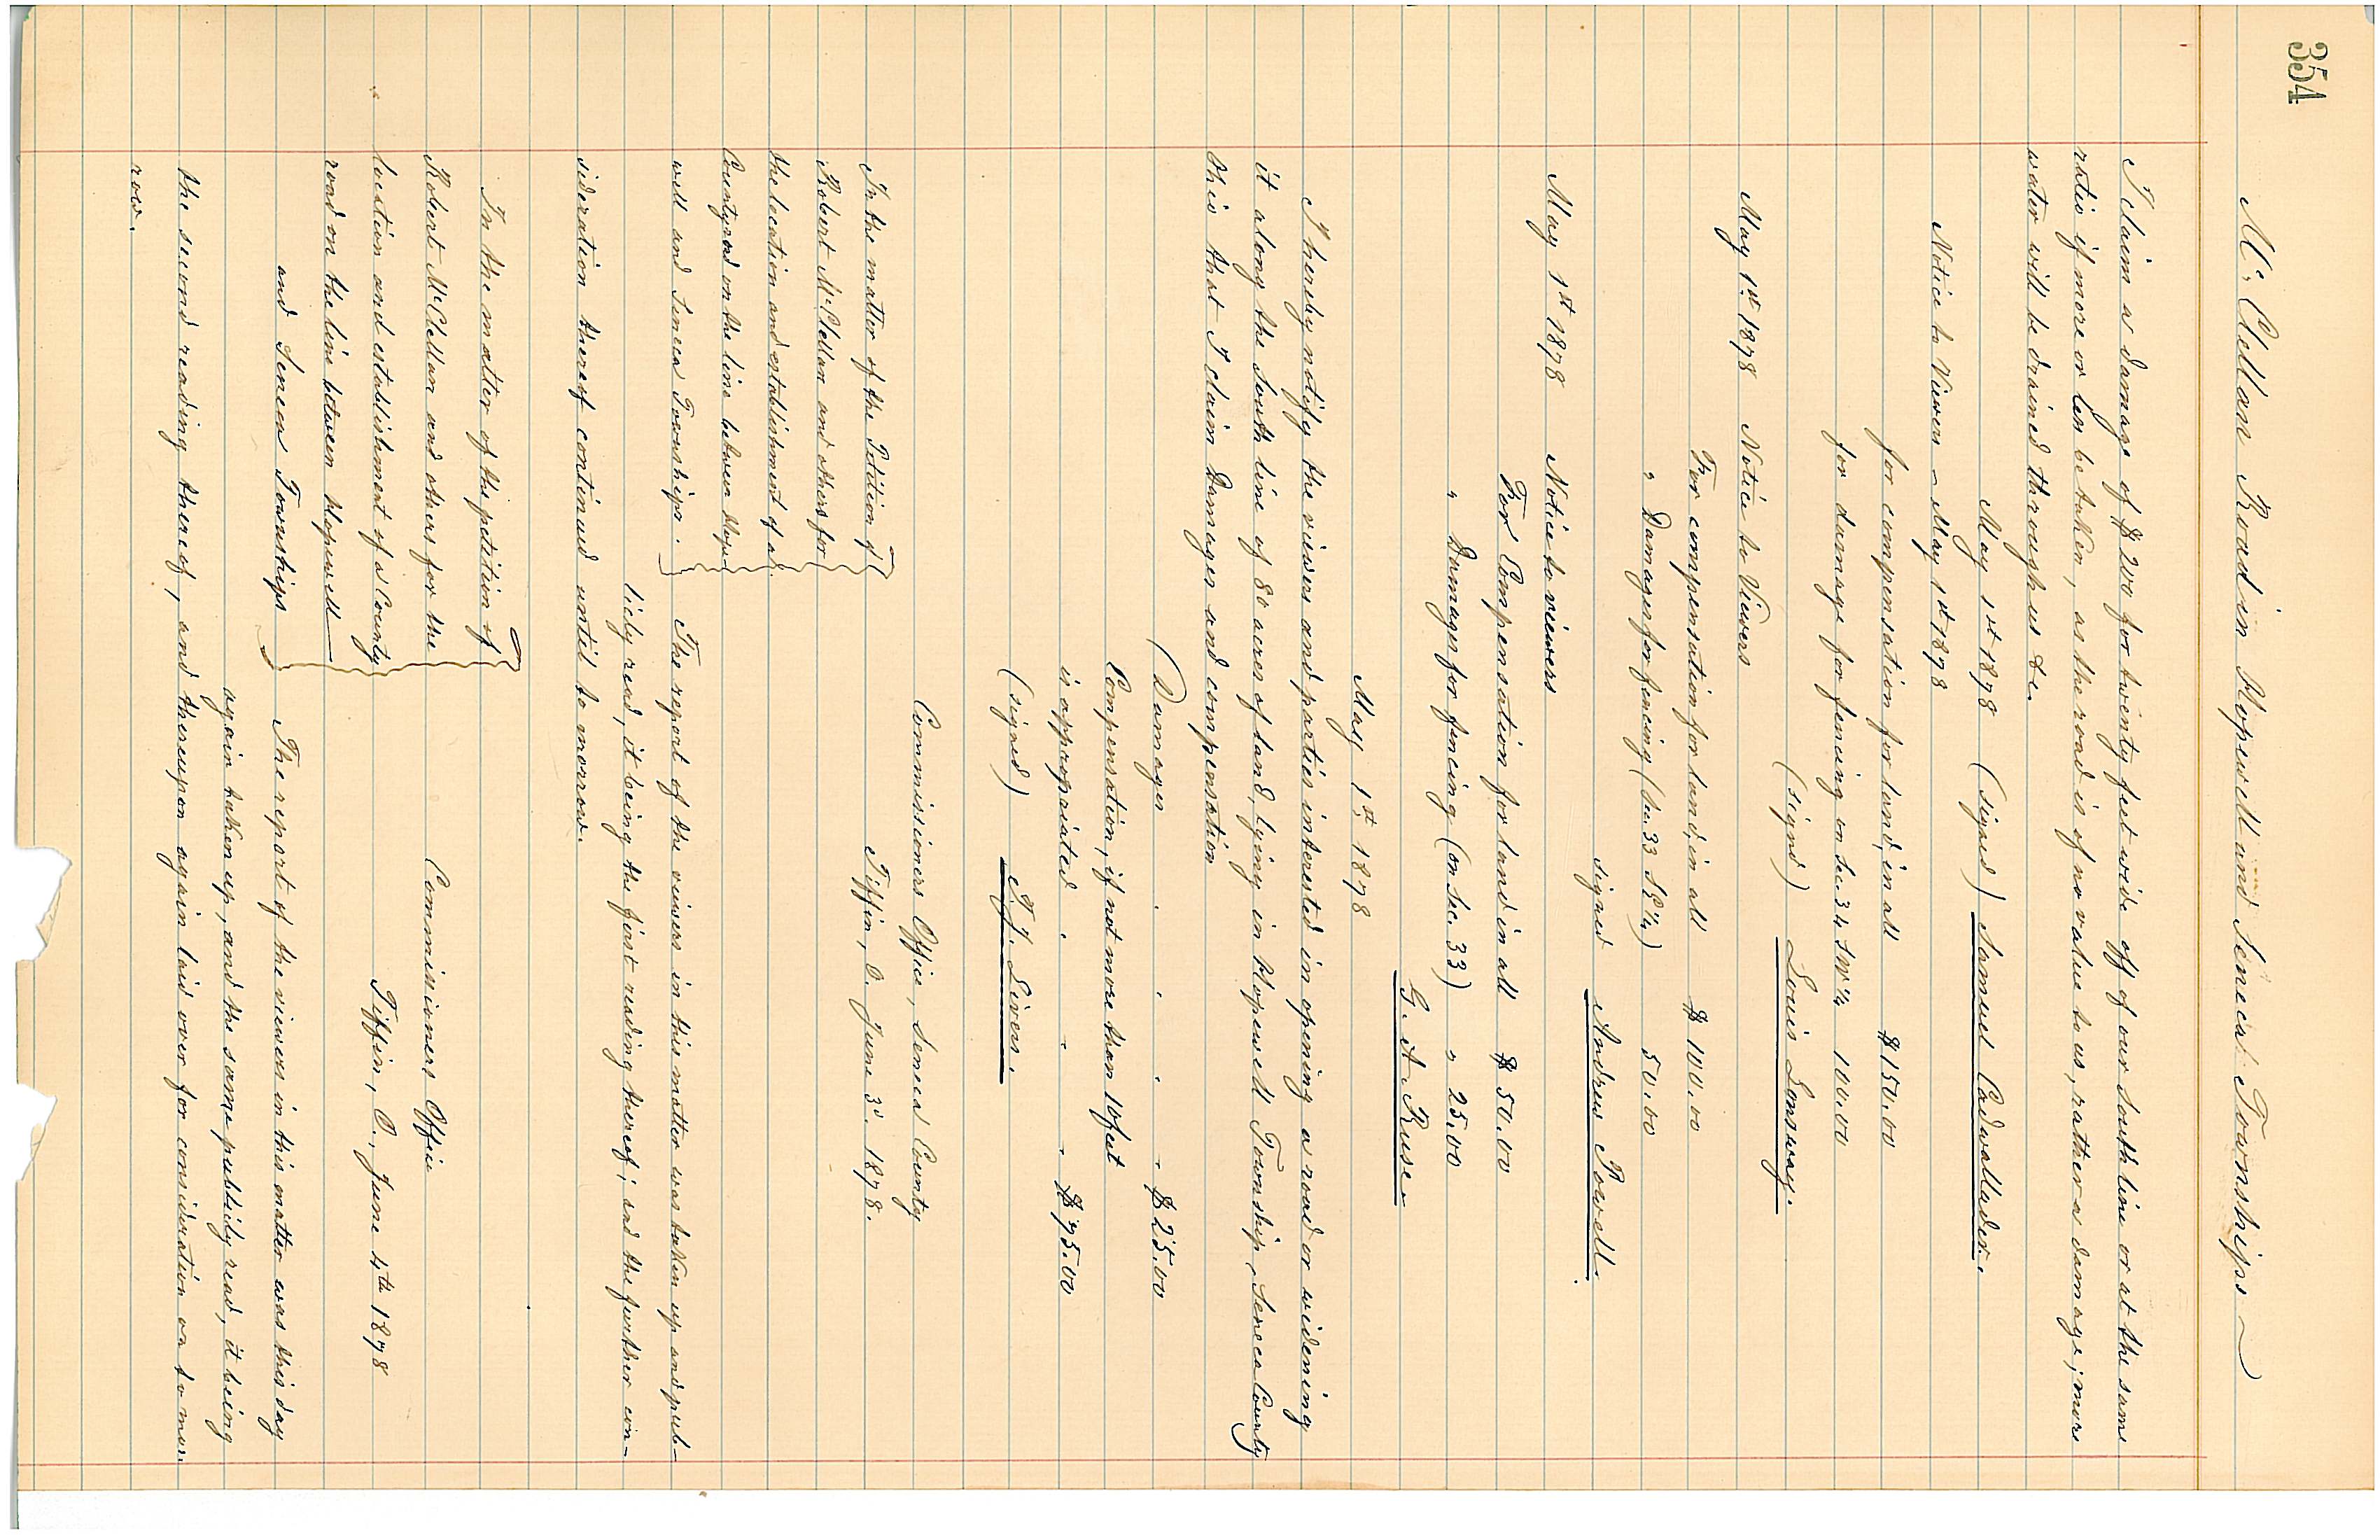 354
Mc. Clellan Road in Hopewell and Seneca Townships
I claim a damage of $200 for twenty feet wide off of our south line or at the same
ratio if more or less be taken, as the road is of no value to us, rather a damage; more
water will be drained through us &c.
May 1st 1878 (signed) Samuel Cadwallader.
Notice to Viewers - May 1st 1878
for compensation for land, in all $150.00
for damage for fencing on Sec. 34 SW 1/4 100.00
(signed) Louis Lonsway.
May 1st 1878 Notice to Viewers
For compensation for land, in all $100.00
" Damages for fencing (Sec. 33 SE 1/4) 50.00
signed Andrew Powell.
May 1st 1878 Notice to viewers
For Compensation for land in all $50.00
" Damages for fencing (on Sec. 33) " 25.00
G. A. Ruse.
May 1st 1878
I hereby notify the viewers and parties interested in opening a road or widening
it along the South line of 80 acres of land, lying in Hopewell Township, Seneca County
this that I claim Damages and compensation
(Damages . . . . $25.00
Compensation, if not more than 10 feet
is appropriated . - - $75.00
(signed) T. J. Livers.
Commissioners Office, Seneca County
Tiffin, O. June 3d. 1878.
In the matter of the Petition of
Robert McClellan and others for
the location and establishment of a
County road on the line between Hope-
well and Seneca Townships.
The report of the viewers in this matter was taken up and pub-
licly read, it being the first reading thereof; and the further con-
sideration thereof continued until to morrow.
Commissioners Office
Tiffin, O., June 4th 1878
In the matter of the petition of
Robert McClellan and others for the
location and establishment of a County
road on the line between Hopewell
and Seneca Townships
The report of the viewers in this matter was this day
again taken up, and the same publicly read, it being
the second reading thereof, and thereupon again laid over for consideration on to mor-
row.